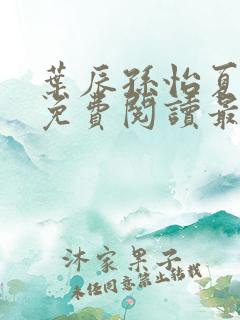 葉辰孫怡夏
免費閱讀最
沐家果子
未經同意禁止轉載